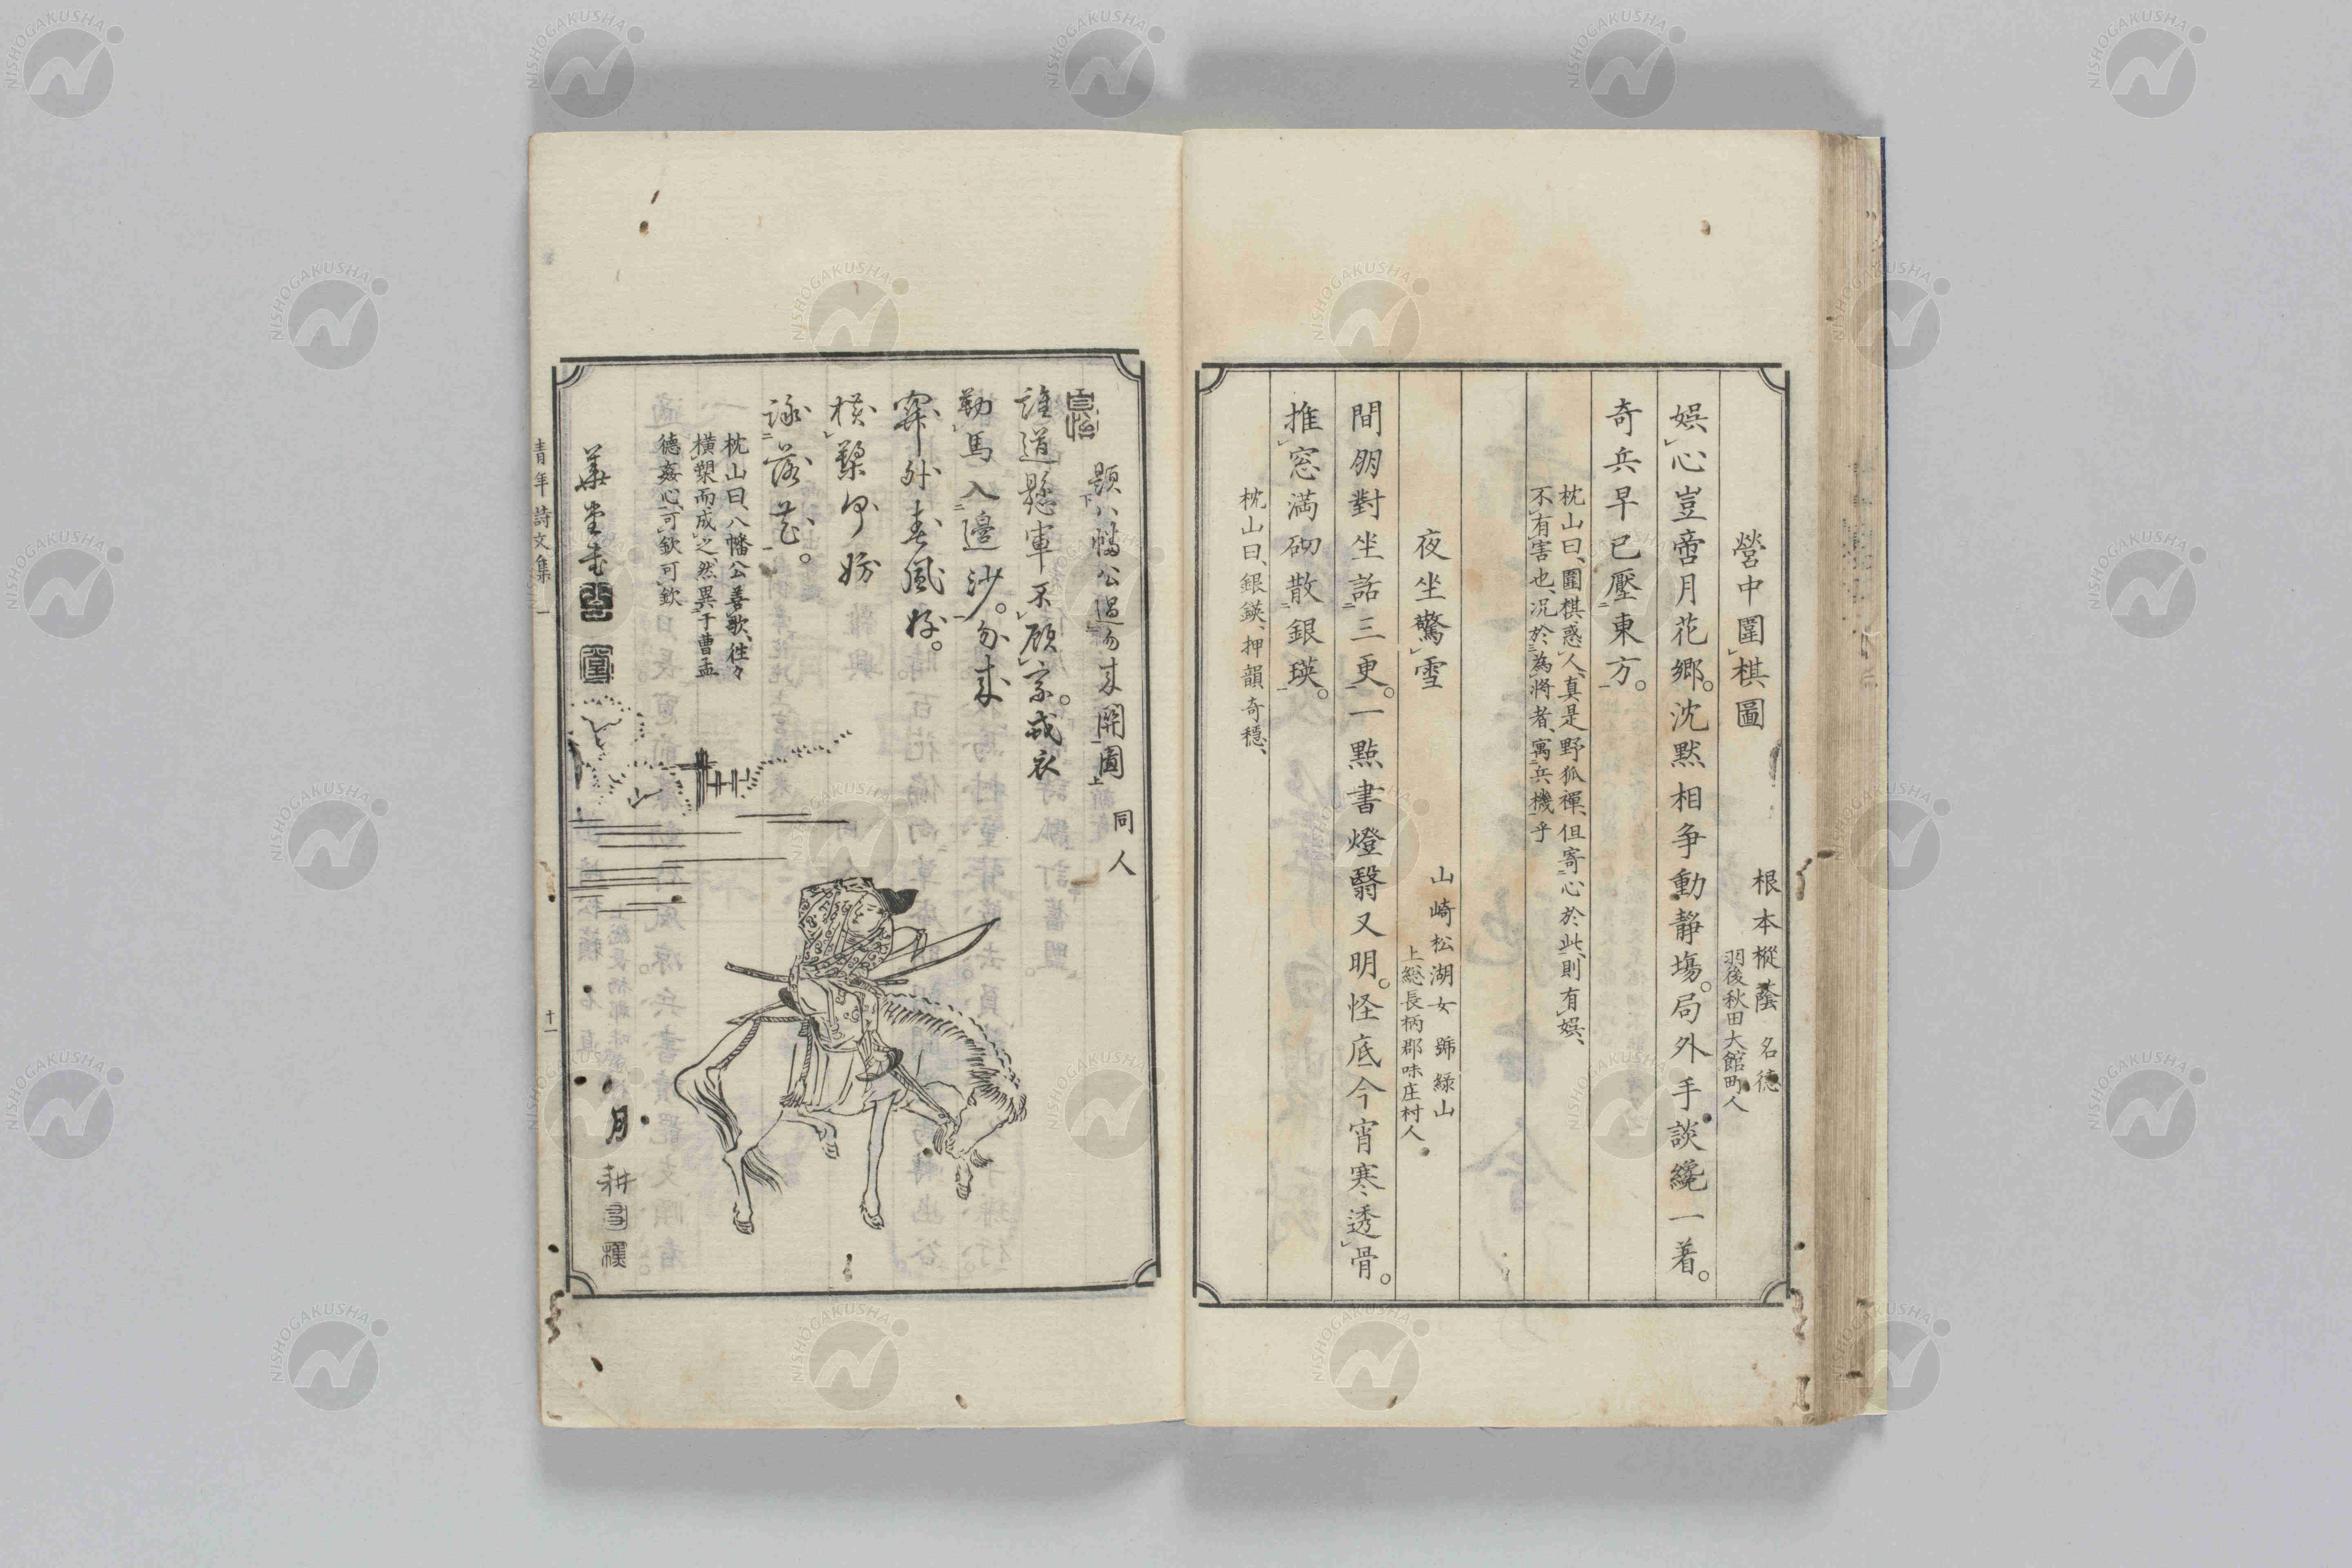 營中圍棋圖
根本樅蔭 名德
羽後秋田大館町人
娯心豈啻月花郷。沈黙相争動靜塲。局外手談纔一著。
奇兵早已壓東方。
枕山曰、圍棋惑人、真是野狐禪、但寄心於此、則有娯、
不有害也、况於為將者、寓兵機乎
夜坐驚雪
山崎松湖女 號綠山
上総長柄郡味庄村人
間朋對坐話三更。一點書燈翳又明。怪底今宵寒透骨。
推窓満砌散銀瑛。
枕山曰、銀鍈、押韻奇穏、
題八幡公過勿来関圖
同人
誰道懸車不顧家。戎衣
勒馬入邊沙。勿来
関外春風好。
横槊何妨
詠落花。
枕山曰、八幡公善歌、往々
横槊而成之、然異于曹孟
德姦心、可欽可欽
華堂書
月耕
青年詩文集 一
十一
NISHOGAKUSHA